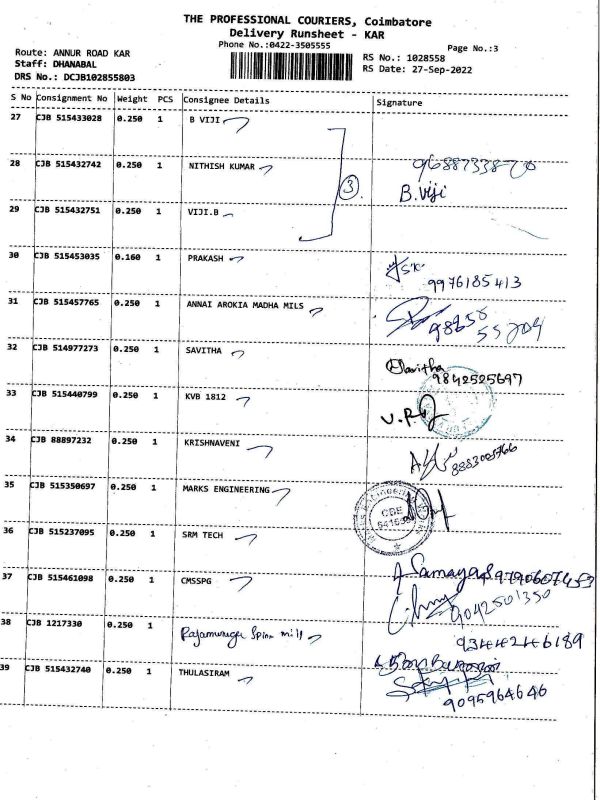 THE PROFESSIONAL COURIERS, Coimbatore
Delivery Runsheet - KAR
Phone No.:0422-3505555
Page No.:3
Route: ANNUR ROAD KAR
RS No.: 1028558
Staff: DHANABAL
RS Date: 27-Sep-2022
DRS No.: DCJB102855803
S No Consignment No Weight PCS Consignee Details Signature
27 CJB 515433028 0.250 1 B VIJI
28 CJB 515432742 0.250 1 NITHISH KUMAR
3
B.Viji
29 CJB 515432751 0.250 1 VIJI.B
30 CJB 515453035 0.160 1 PRAKASH
9976185413
31 CJB 515457765 0.250 1 ANNAI AROKIA MADHA MILS
32 CJB 514977273 0.250 1 SAVITHA
9842525697
33 CJB 515440799 0.250 1 KVB 1812
34 CJB 88897232 0.250 1 KRISHNAVENI
35 CJB 515350697 0.250 1 MARKS ENGINEERING
CBE
36 CJB 515237095 0.250 1 SRM TECH
37 CJB 515461098 0.250 1 CMSSPG
9042501350
38 CJB 1217330 0.250 1 Rajamurugu Spinn mill
9344246189
39 CJB 515432740 0.250 1 THULASIRAM
9095964646